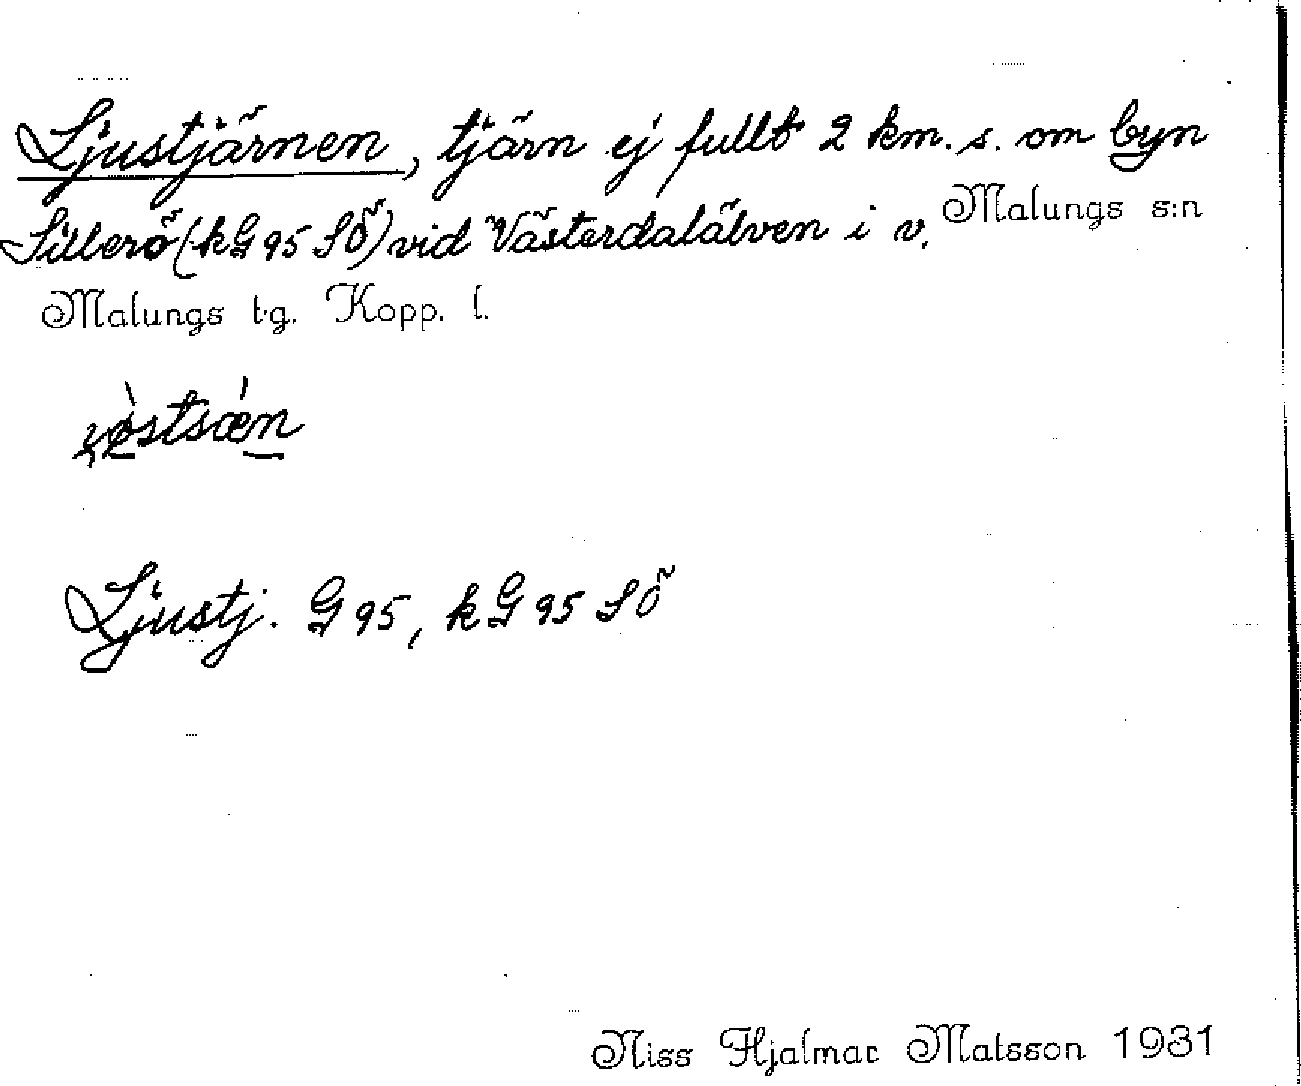 Ljustjärnen, tjärn ej fullt 2 km. s. om byn
Sillerö (kG95SÖ) vid Västerdalälven i v. Malungs s:n
Malungs t.g. Kopp. l.
Ljustj. G95, kG95SÖ
Niss Hjalmar Matsson 1931